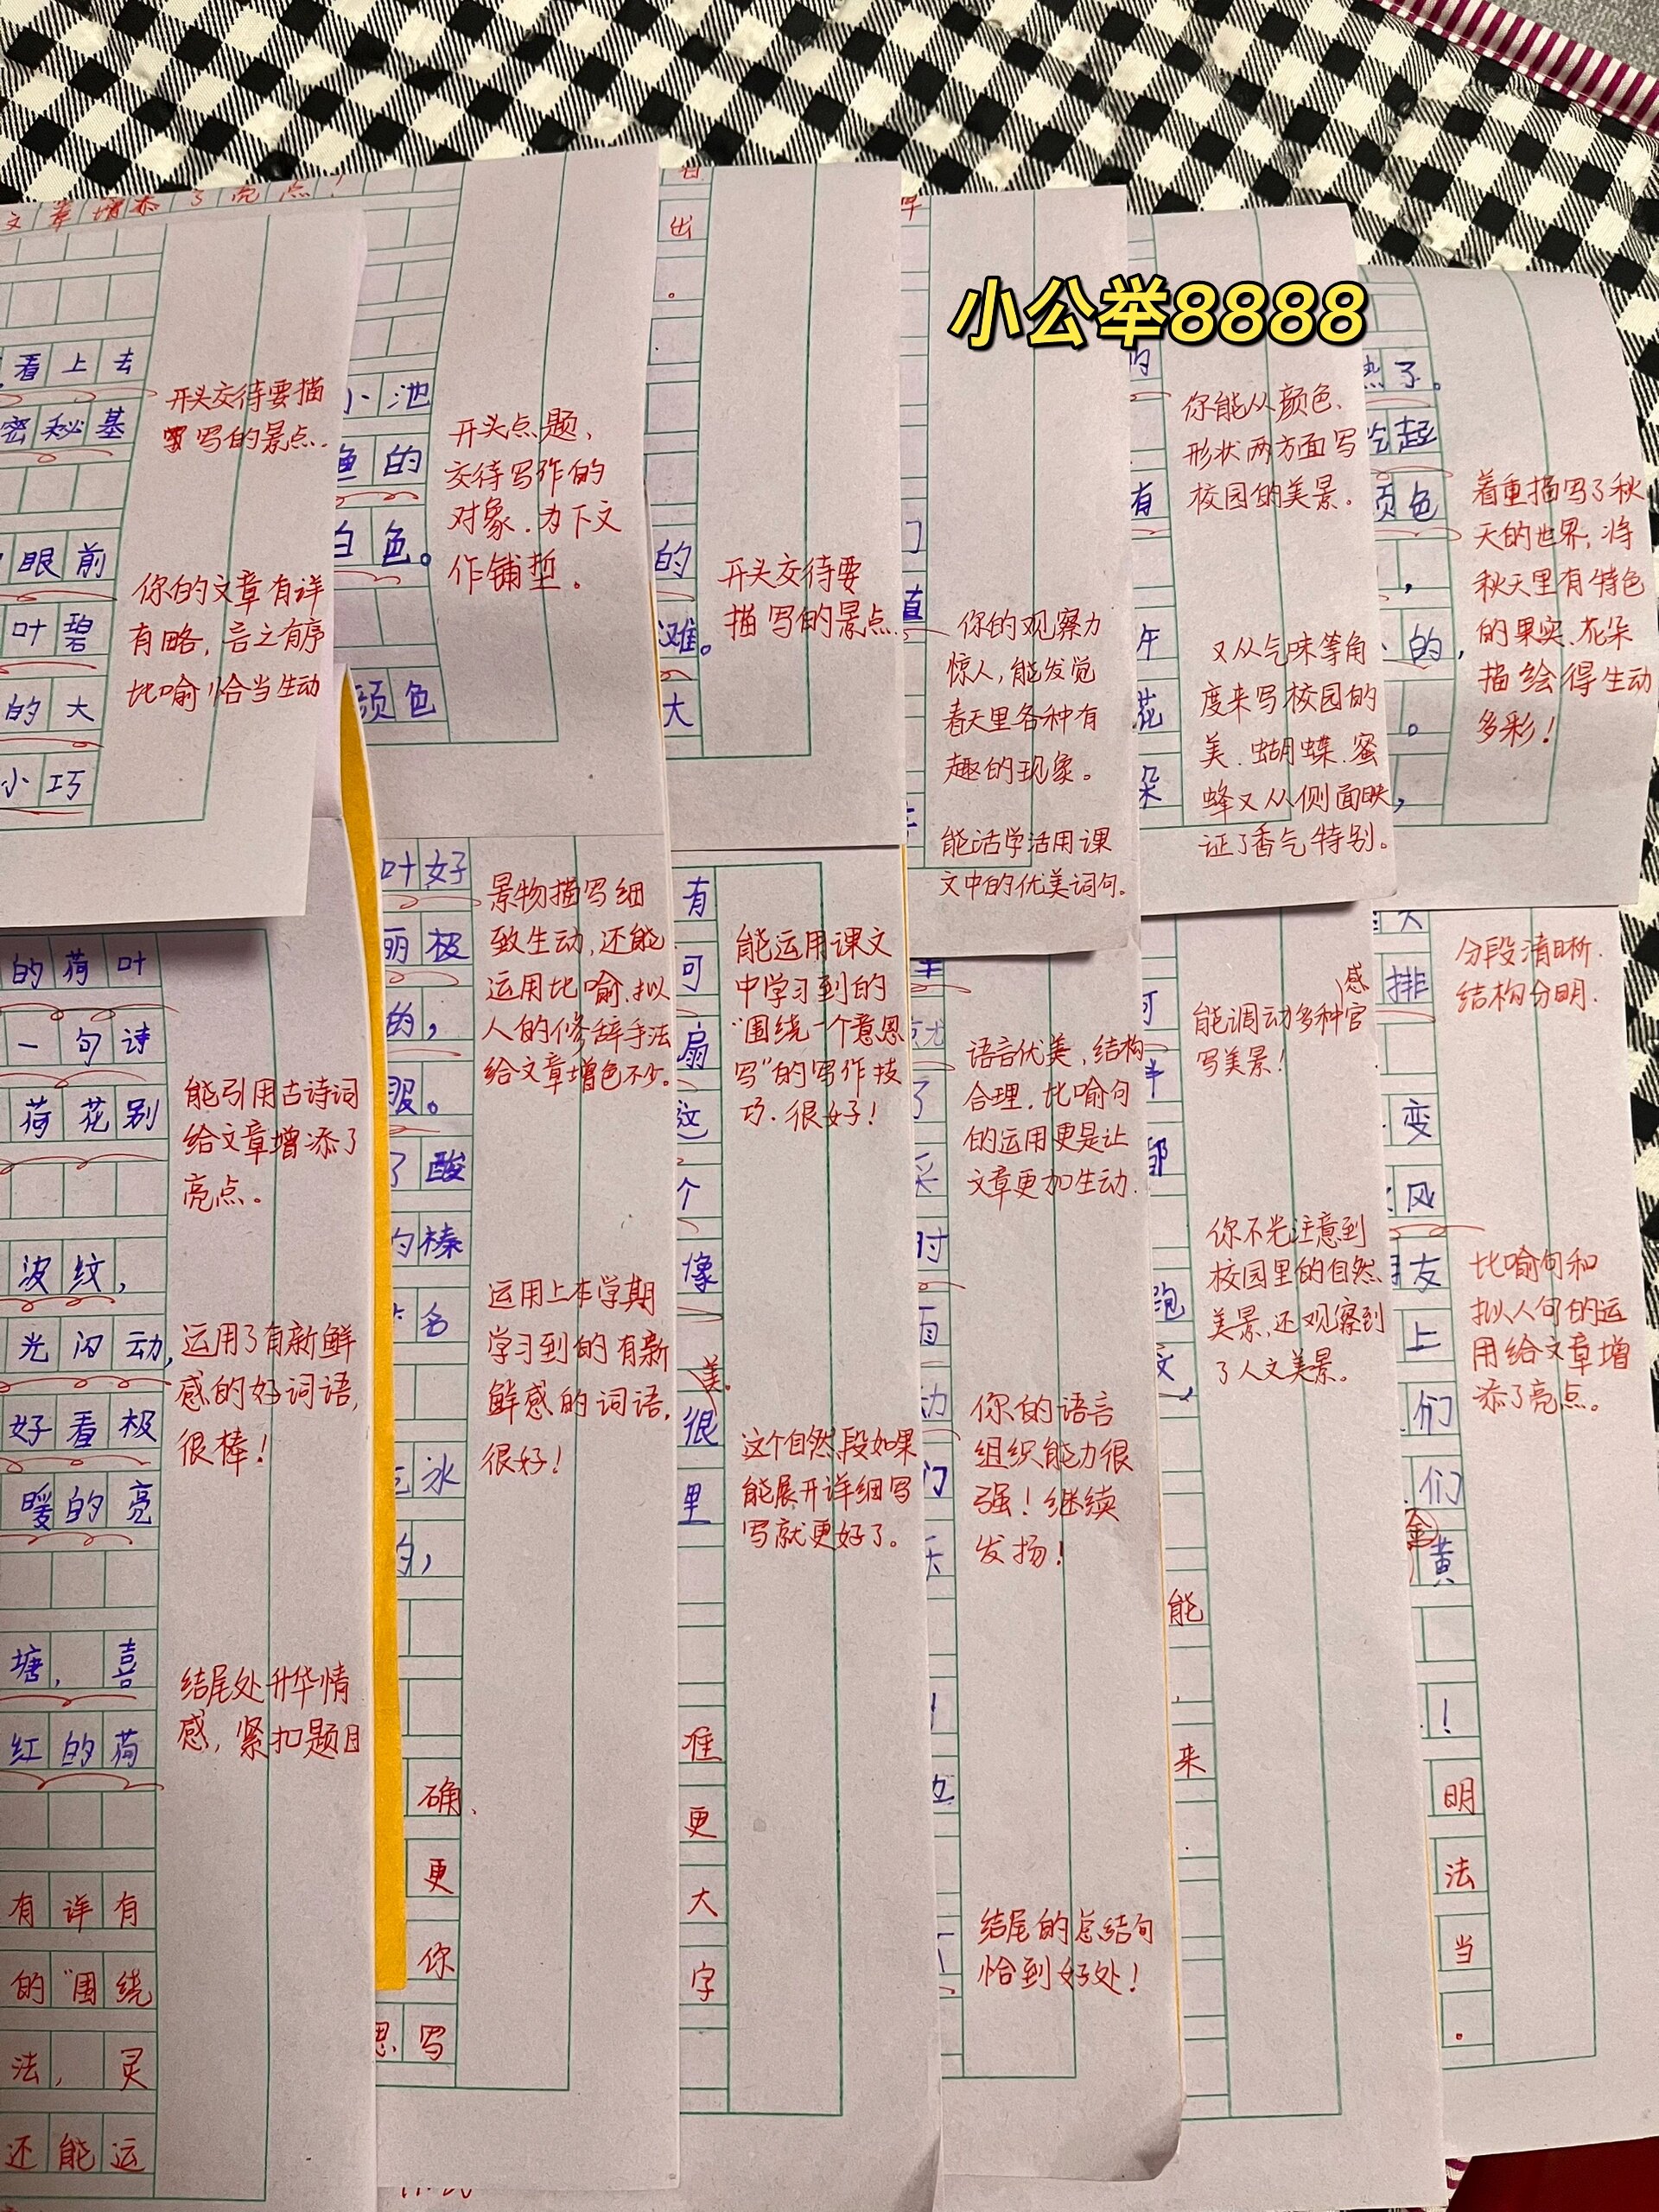 文章增添了亮点!
小公举8888
看上去
密秘基
眼前
叶碧
的大
小巧
开头交待要描
写的景点.
你的文章有详
有略,言之有序
比喻恰当生动
小池
色的
白色。
颜色
开头点题、
交待写作的
对象.为下文
作铺垫。
出
。
的
滩。
大
开头交待要
描写的景点.
你的观察力
惊人,能发觉
春天里各种有
趣的现象。
能活学活用课
文中的优美词句.
的
有
午
花
朵
你能从颜色、
形状两方面写
校园的美景。
又从气味等角
度来写校园的
美.蝴蝶.蜜
蜂又从侧面映
证了香气特别。
热了。
吃起
颜色
,
的,
。
着重描写了秋
天的世界,将
秋天里有特色
的果实.花朵
描绘得生动
多彩!
的荷叶
一句诗
荷花别
波纹,
光闪动,
好看极
暖的亮
塘,喜
红的荷
有详有
的"围绕
法,灵
还能运
能引用古诗词
给文章增添了
亮点。
运用了有新鲜
感的好词语,
很棒!
结尾处升华情
感,紧扣题目
叶好
丽极
的,
服。
了酸
的榛
名
冰
的,
确.
更
你
思写
景物描写细
致生动,还能
运用比喻.拟
人的修辞手法
给文章增色不少。
运用上本学期
学习到的有新
鲜感的词语,
很好!
有
可
扇
这
个
像
美。
很
里
准
更
大
字
能运用课文
中学习到的
"围绕一个意思
写"的写作技
巧.很好!
这个自然段如果
能展开详细写
写就更好了。
了
采
时
面
动
门
语言优美,结构
合理.比喻句
的运用更是让
文章更加生动.
你的语言
组织能力很
强!继续
发扬!
结尾的总结句
恰到好处!
能
来
能调动多种官感
写美景!
你不光注意到
校园里的自然
美景,还观察到
了人文美景。
排
变
风
朋友
上
们
们
金黄
!
明
法
当
.
分段清晰.
结构分明.
比喻句和
拟人句的运
用给文章增
添了亮点。